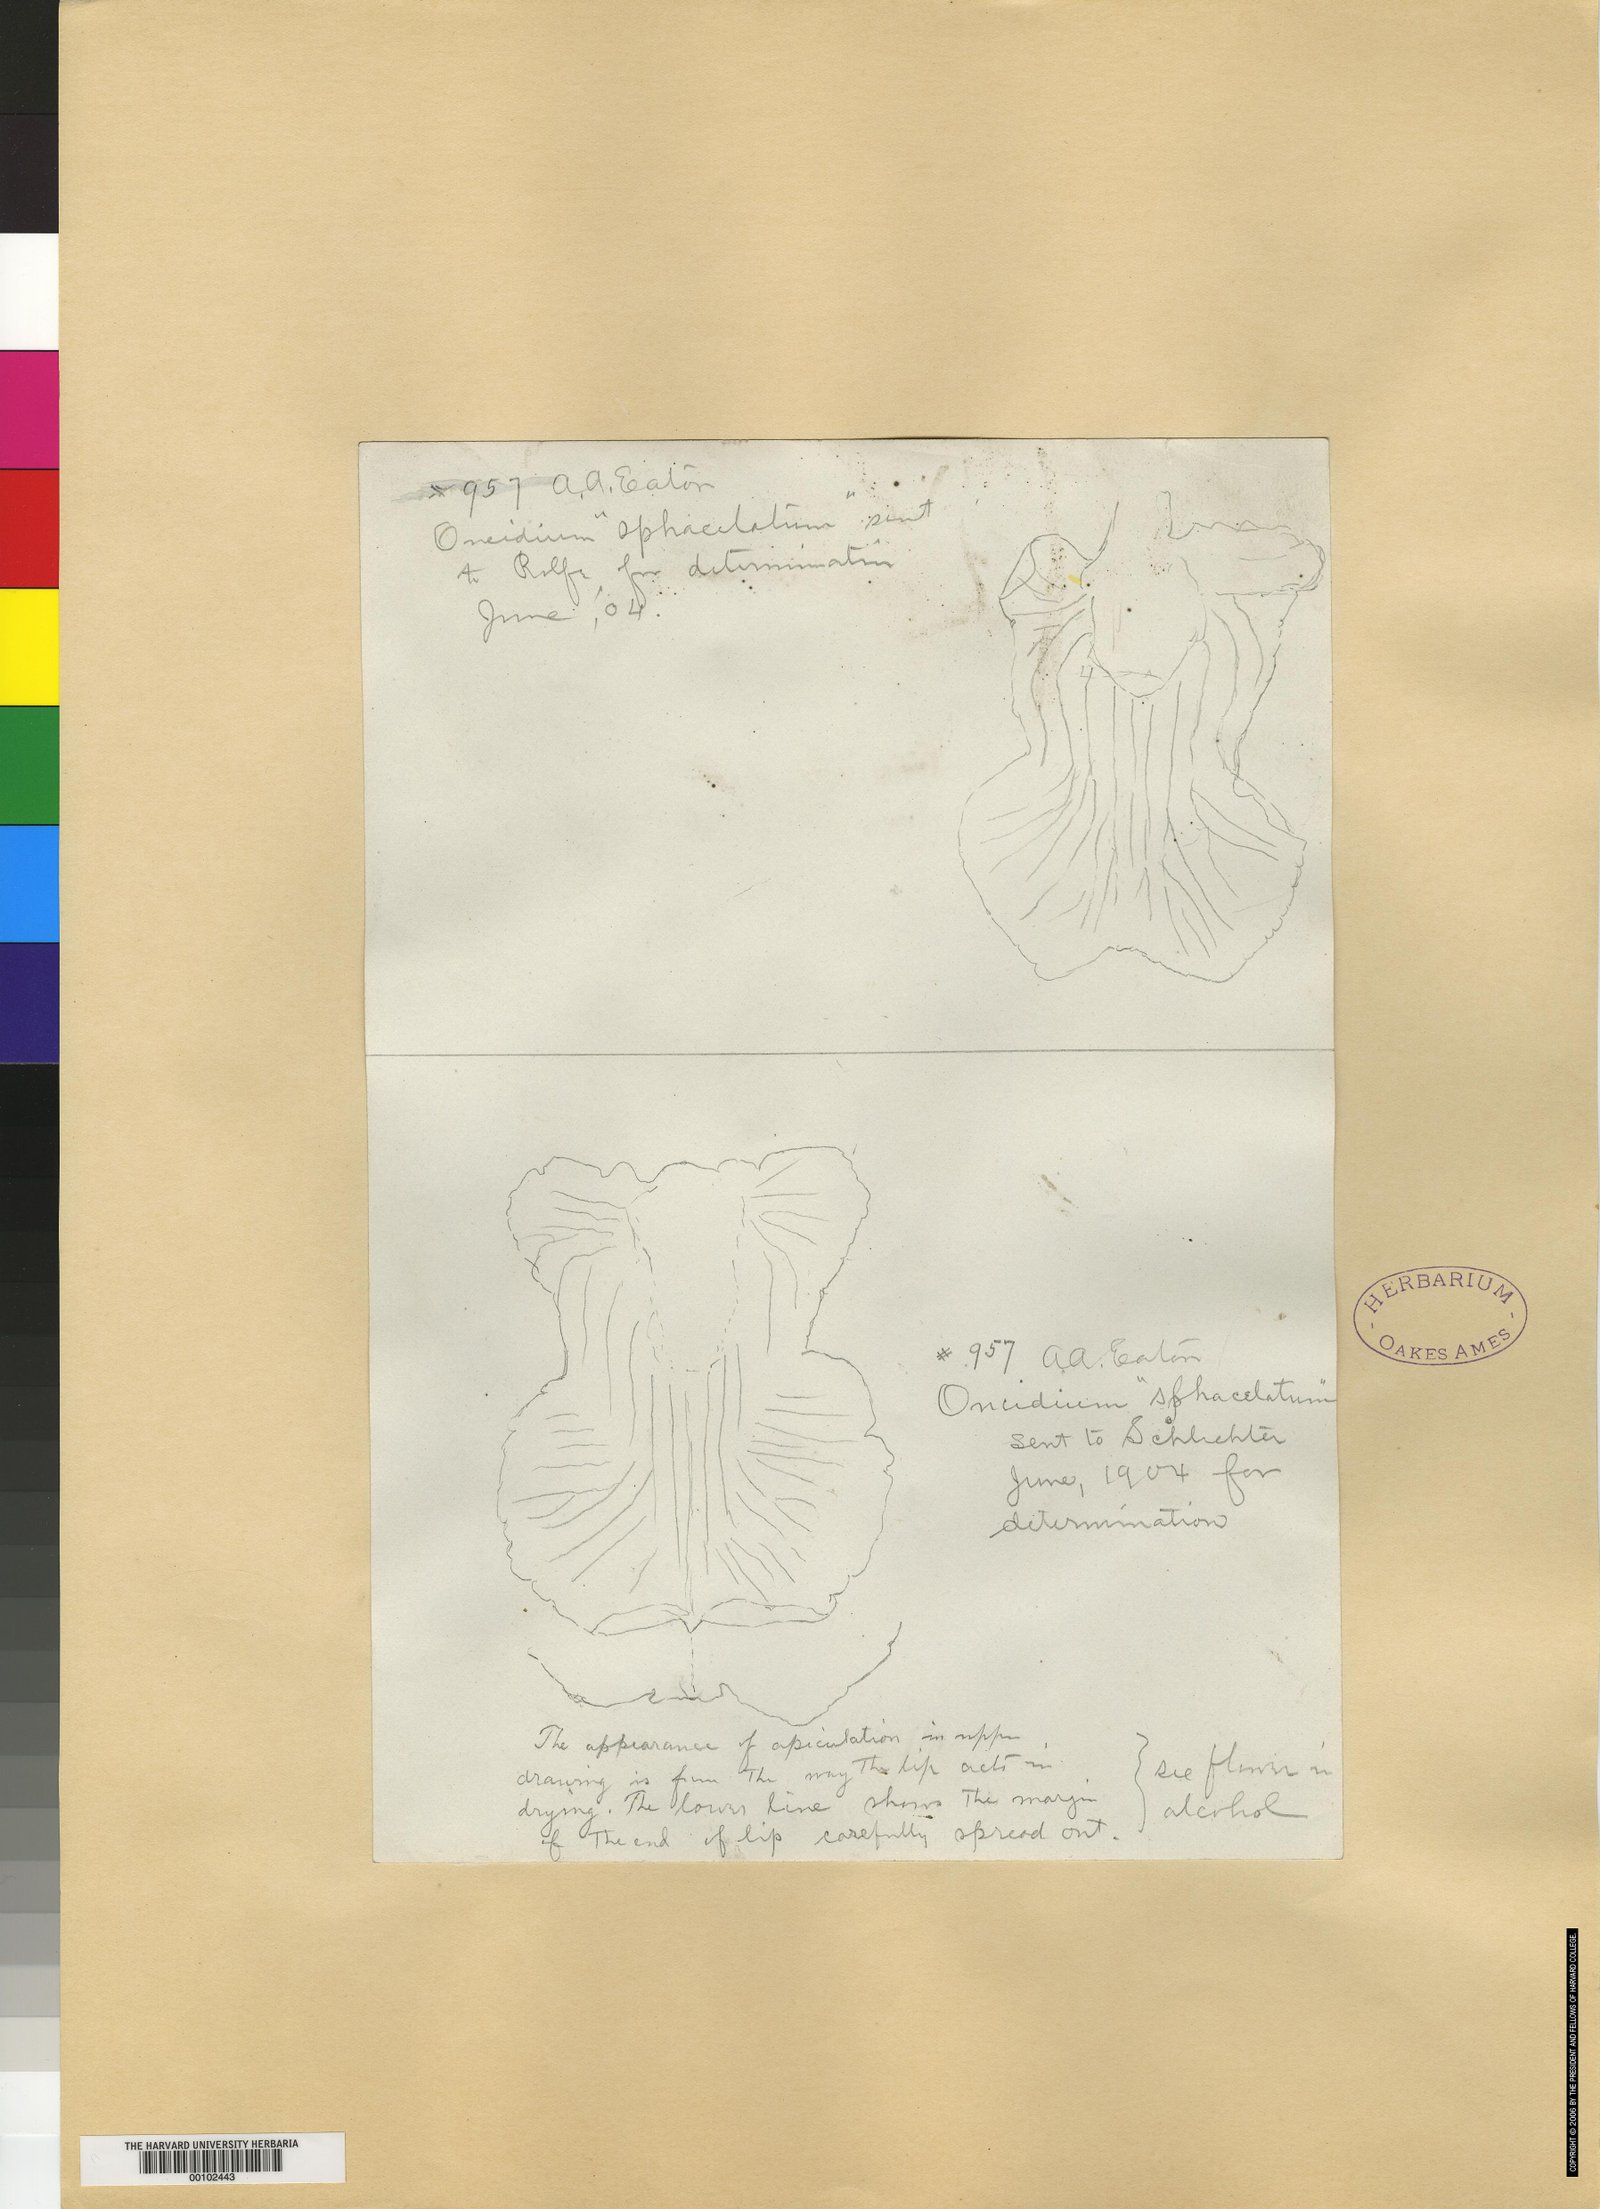 # 957 A.A. Eaton
Oncidium "sphacelatum" sent
to Rolfe, for determination
June, '04.
# 957 A.A. Eaton
Oncidium "sphacelatum"
sent to Schlechter
June, 1904 for
determination
HERBARIUM
OAKES AMES
The appearance of apiculation in upper
drawing is from the way the lip acts in
drying. The lower line shows the margin
of the end of lip carefully spread out.
} see flower in
alcohol
THE HARVARD UNIVERSITY HERBARIA
00102443
COPYRIGHT © 2006 BY THE PRESIDENT AND FELLOWS OF HARVARD COLLEGE.